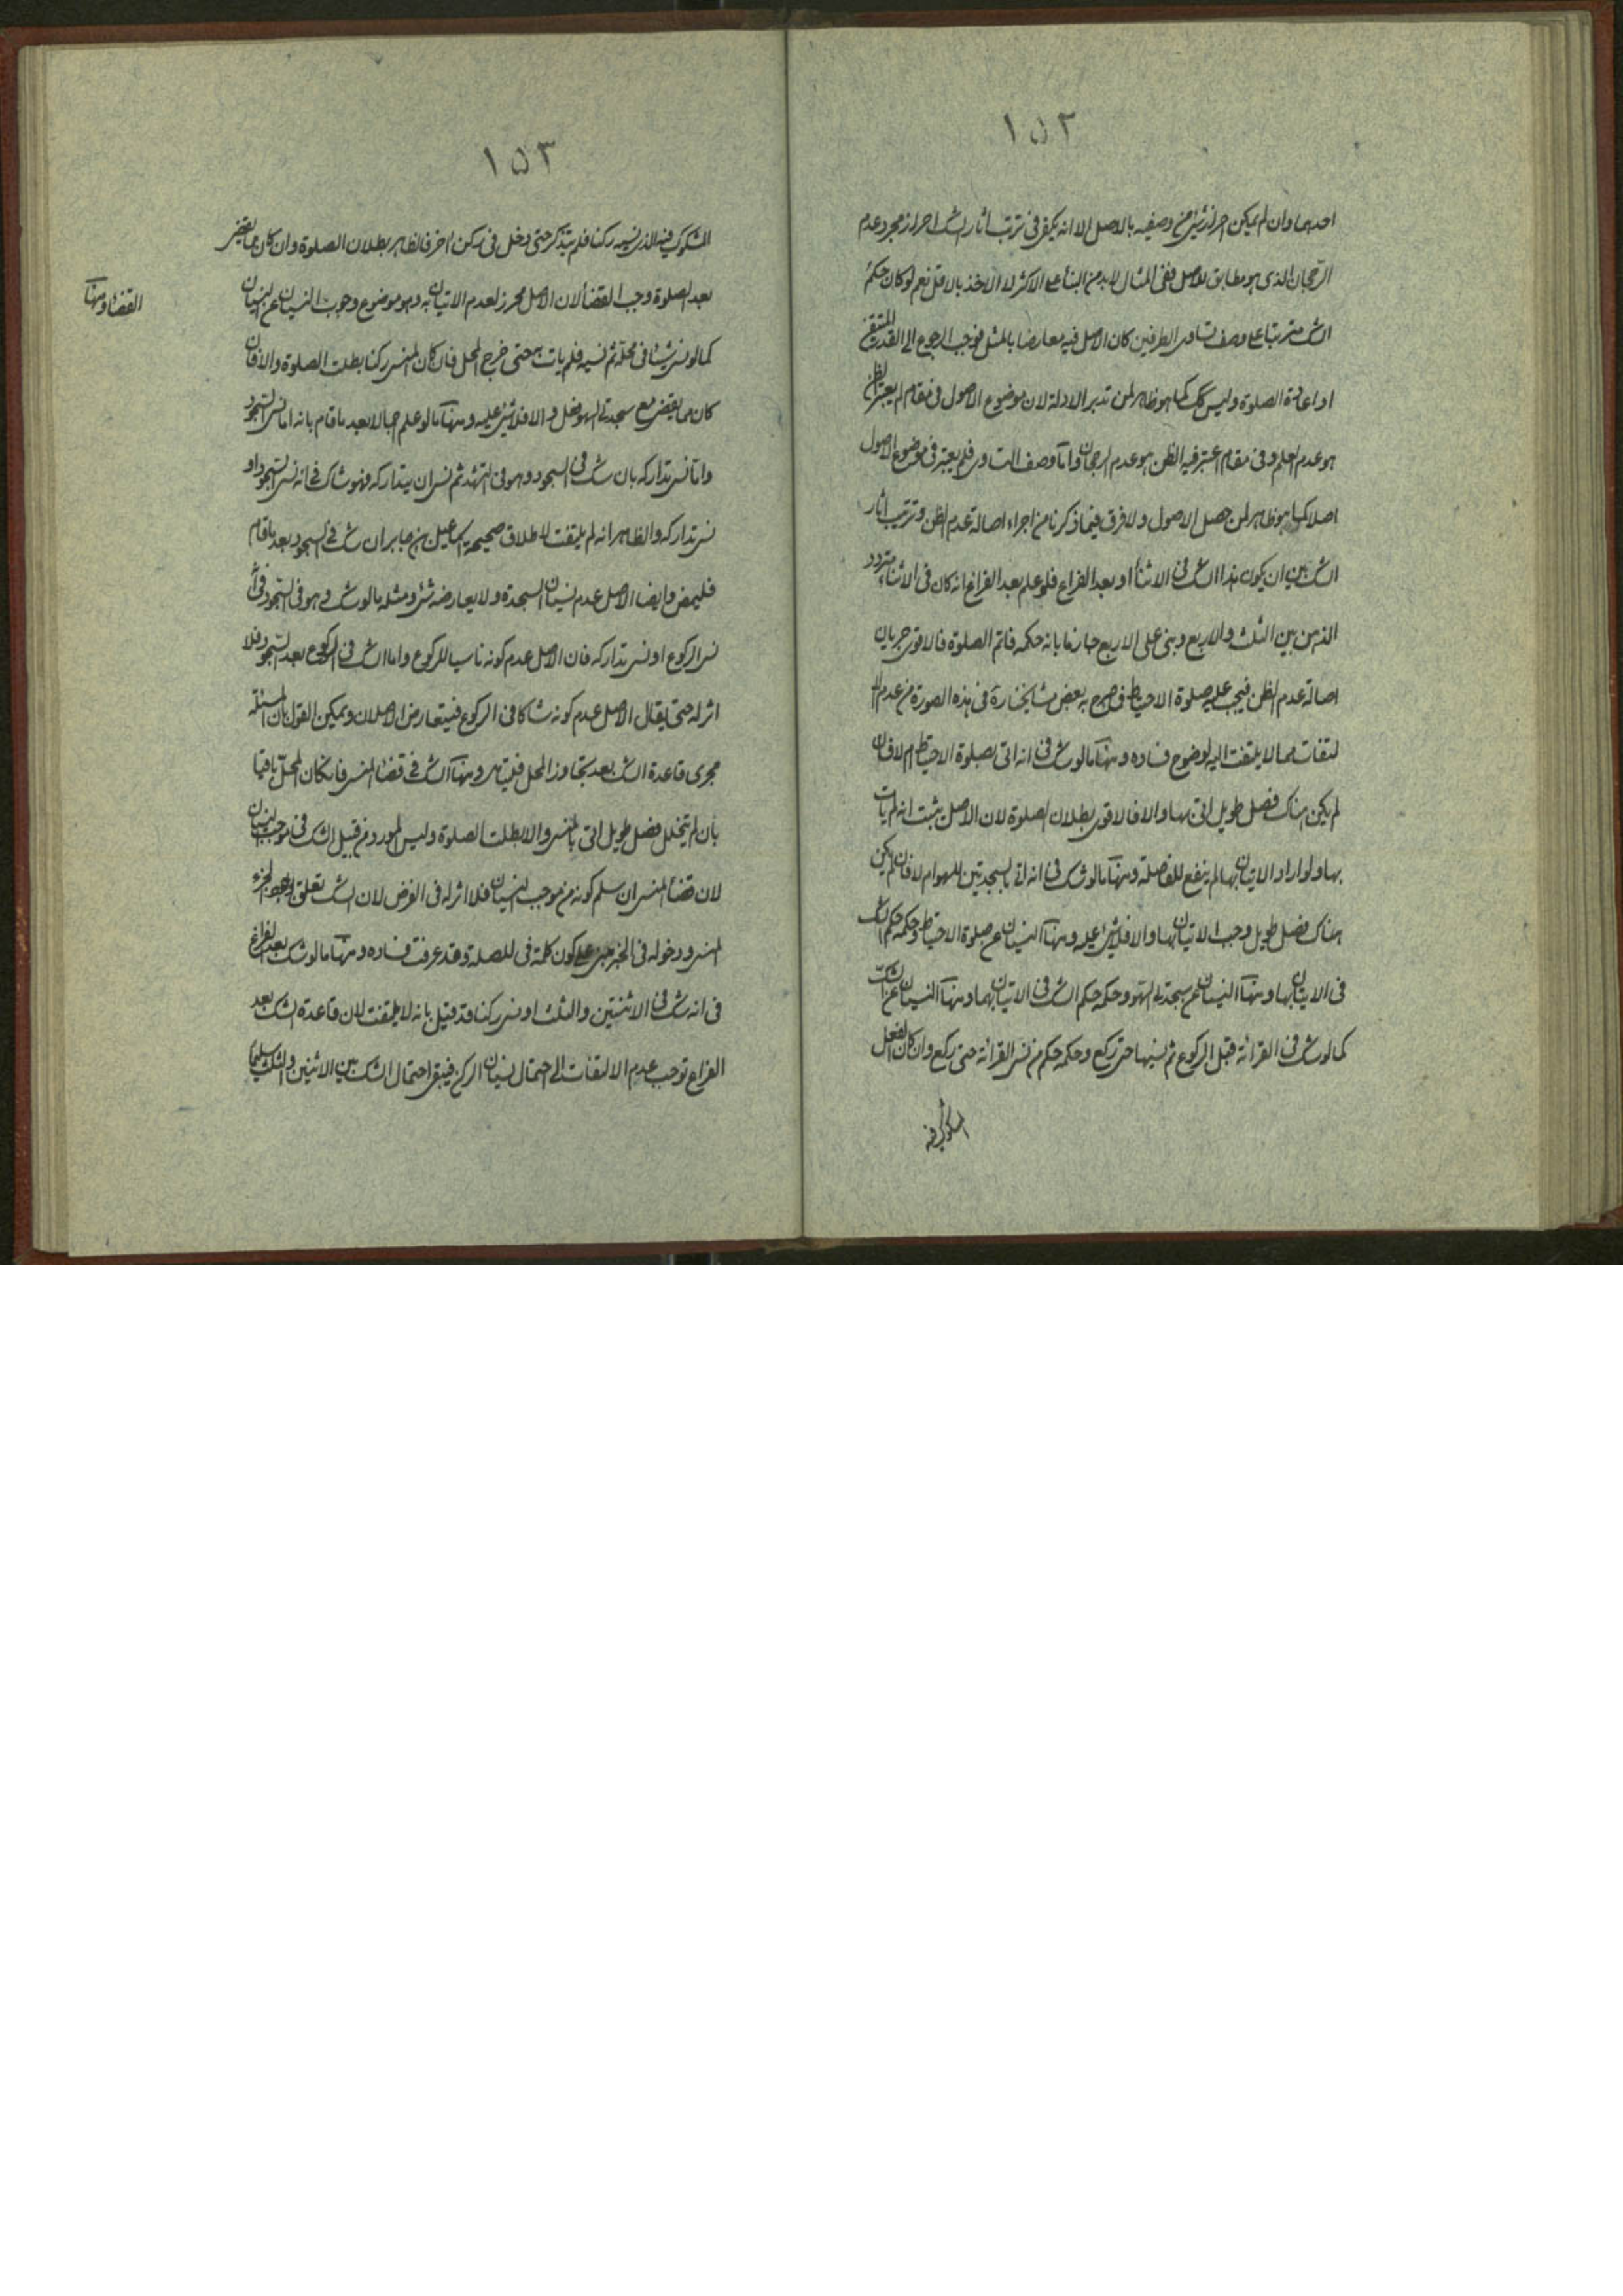 ١٥٢
احدهما وان لم يمكن احراز شئ من وصفيه بالاصل الا انه يكفى فى ترتب اثار الشك احراز مجرد عدم
الرجحان الذى هو مطابق للاصل ففى المثال لابد من البناء على الاكثر لا الاخذ بالاقل نعم لو كان حكم
الشك مترتبا على وصف تساوى الطرفين كان الاصل فيه معارضا بالمثل فوجب الرجوع الى القدر المتيقن
او اعادة الصلوة وليس كك كما هو ظاهر لمن تدبر الادلة لان موضوع الاصول فى مقام لم يعتبر الظن
هو عدم العلم وفى مقام اعتبر فيه الظن هو عدم الرجحان واما وصف التساوى فلم يعتبر فى موضوع الاصول
اصلا كما هو ظاهر لمن حصل الاصول ولا فرق فيما ذكرنا من اجراء اصالة عدم الظن وترتب اثار
الشك بين ان يكون هذا الشك فى الاثناء او بعد الفراغ فلو علم بعد الفراغ انه كان فى الاثناء متردد
الذهن بين الثلث والاربع وبنى على الاربع جازما بانه حكمه فاتم الصلوة فالاقوى جريان
اصالة عدم الظن فيجب عليه صلوة الاحتياط فما صرح به بعض مشايخنا ره فى هذه الصورة من عدم الا
لتفات مما لا يلتفت اليه لوضوح فساده ومنها ما لو شك فى انه اتى بصلوة الاحتياط ام لا فان
لم يكن هناك فصل طويل اتى بها والا فالاقوى بطلان الصلوة لان الاصل يثبت انه لم يات
بها ولو اراد الاتيان بها لم ينفع للفاصلة ومنها ما لو شك فى انه اتى بالسجدتين للسهو ام لا فان لم يكن
هناك فصل طويل وجب الاتيان بها والا فلا شئ عليه ومنها النسيان عن صلوة الاحتياط وحكمه حكم الشك
فى الاتيان بها ومنها النسيان عن سجدتى السهو وحكمه حكم الشك فى الاتيان بهما ومنها النسيان عن الشك
كما لو شك فى القرائة قبل الركوع ثم نسيها حتى ركع وحكمه حكم من نسى القرائة حتى ركع وان كان الفعل
المشكوك فيه
١٥٣
المشكوك فيه الذى نسيه ركنا فلم يتذكر حتى دخل فى ركن اخر فالظاهر بطلان الصلوة وان كان مما يقضى
بعد الصلوة وجب القضاء لان الاصل محرز لعدم الاتيان به وهو موضوع وجوب النسيان عن النسيان
القضاء ومنها
كما لو نسى شيئا فى محله ثم نسيه فلم يات به حتى خرج المحل فان كان المنسى ركنا بطلت الصلوة والا فان
كان مما يقضى مع سجدتى السهو فعل والا فلا شئ عليه ومنها ما لو علم اجمالا بعد ما قام بانه اما نسى السجود
واما نسى تداركه بان شك فى السجود وهو فى التشهد ثم نسى ان يتداركه فهو شاك فى انه نسى السجود او
نسى تداركه والظاهر انه لم يلتفت لاطلاق صحيحة اسماعيل بن جابر ان شك فى السجود بعد ما قام
فليمض وايضا الاصل عدم نسيان السجدة ولا يعارضه شئ ومثله ما لو شك وهو فى السجود فى انه
نسى الركوع او نسى تداركه فان الاصل عدم كونه ناسيا للركوع واما الشك فى الركوع بعد السجود فلا
اثر له حتى يقال الاصل عدم كونه شاكا فى الركوع فيتعارض الاصلان ويمكن القول بان المسئلة
مجرى قاعدة الشك بعد تجاوز المحل فليتامل ومنها الشك فى قضاء المنسى فان كان المحل باقيا
بان لم يتخلل فصل طويل اتى بالمنسى والا بطلت الصلوة وليس المورد من قبيل الشك فى موجب النسيان
لان قضاء المنسى ان سلم كونه من موجب النسيان فلا اثر له فى الفرض لان الشك تعلق الجزء
المنسى ودخوله فى الخبر مبنى على كون كلمة فى للصلة وقد عرفت فساده ومنها ما لو شك بعد الفراغ
فى انه شك فى الاثنتين والثلث او نسى ركنا قد قيل بانه لا يلتفت لان قاعدة الشك بعد
الفراغ توجب عدم الالتفات الى احتمال نسيان الركن فيبقى احتمال الشك بين الاثنين والثلث سليما